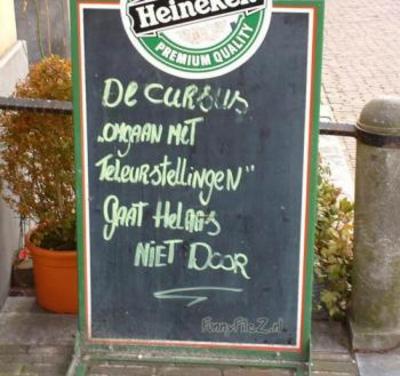 Heineken
PREMIUM QUALITY
De CURSUS
„OMGAAN MET
TeleURSTellingeN"
gAAT HelAAS
NieT DOOR
FunnyFileZ.nl